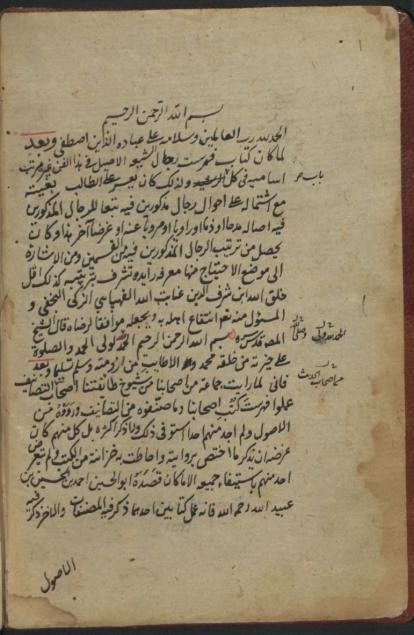 بسم الله الرحمن الرحيم
الحمد لله رب العالمين وسلامه على عباده الذين اصطفى وبعد
لما كان كتاب فهرست رجال الشيخ الاصيل في هذا الفن غير مرتب
اساميه في كل باب ولذلك كان يعسر على الطالب بغيته
مع اشتماله على احوال رجال مذكورين فيه تبعا للرجال المذكورين
فيه اصالة مدحا او ذما او راويا او مرويا عنه او غرضا آخر هذا وكان
يحصل من ترتيب الرجال المذكورين فيه من القسمين ومن الاشارة
الى موضع الاحتياج منها معرفة زايدة تشرف بترتيبه كذلك اقل
خلق الله ابن شرف الدين عناية الله القهپايي الزكي النجفي و
المسئول منه تعم انتفاع اهله به ويجعله موافقا لرضاه قال الشيخ
المص قدس سره بسم الله الرحمن الرحيم الحمد لولي الحمد والصلوة
على خيرته من خلقه محمد واله الاطايب من ارومته وسلم تسليما وبعد
فاني لما رايت جماعة من اصحابنا من شيوخ طائفتنا اصحاب التصانيف
عملوا فهرست كتب اصحابنا وما صنفوه من التصانيف ورووه من
الاصول ولم اجد منهم احدا استوفى ذلك ولا ذكر اكثره بل كل منهم كان
غرضه ان يذكر ما اختص بروايته واحاطت به خزانته من الكتب ولم يتعرض
احد منهم باستيفاء جميعه الا ما كان قصده ابو الحسين احمد بن الحسين بن
عبيد الله رحمه الله فانه عمل كتابين احدهما ذكر فيه المصنفات والاخر ذكر فيه
الاصول
باب
من اصحاب الحديث